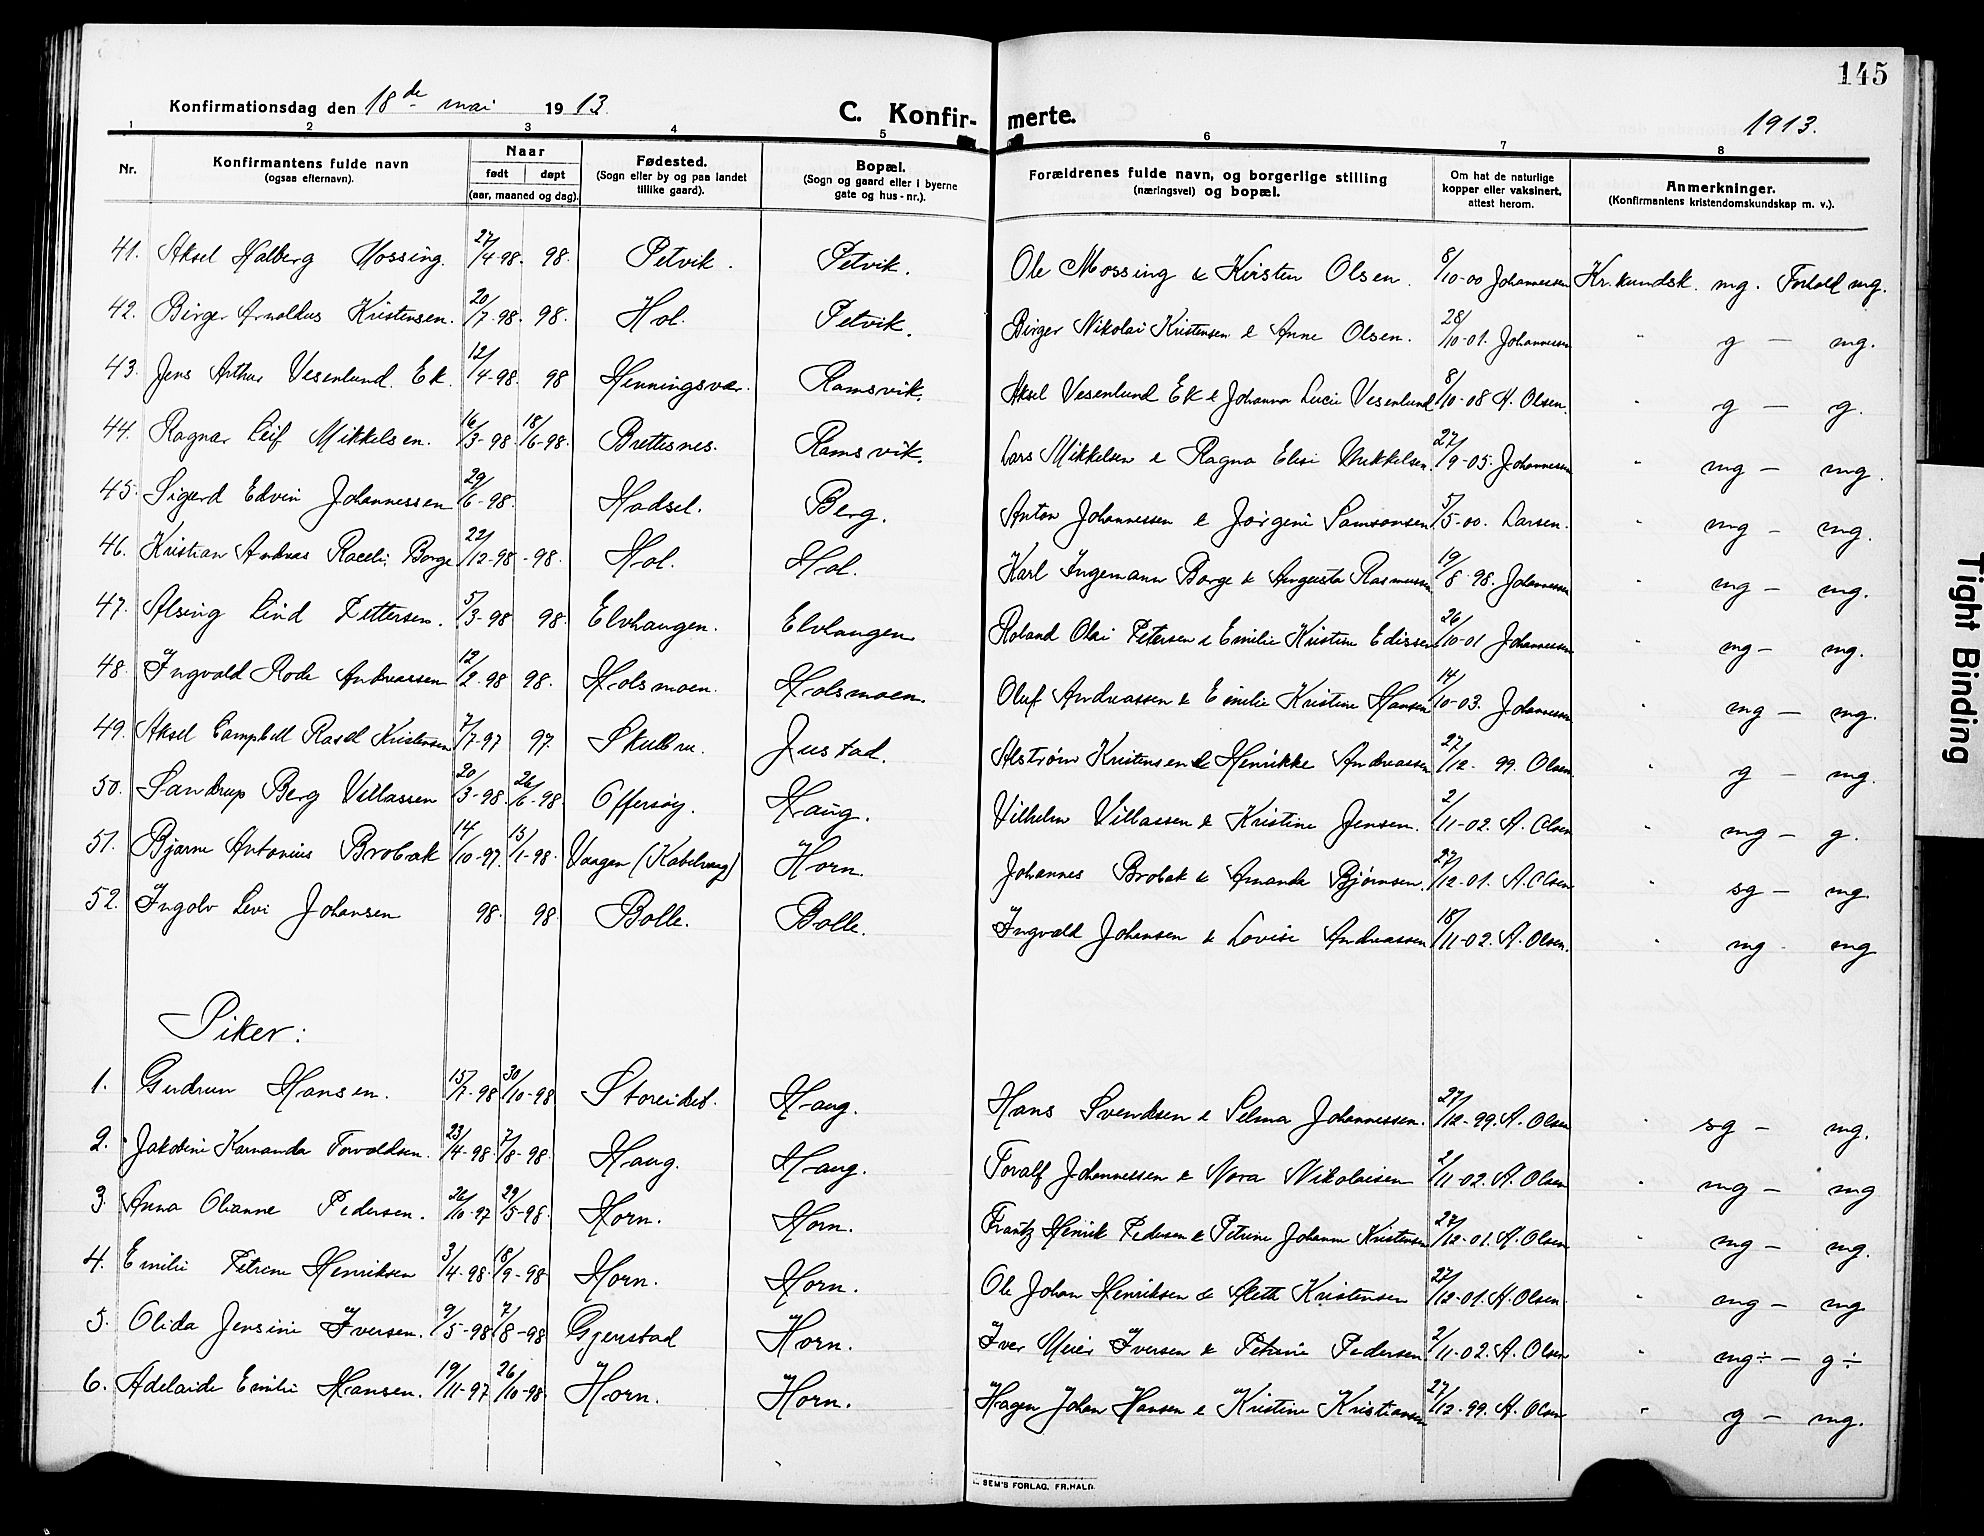 145
Konfirmationsdag den 18de mai 1913.
C. Konfirmerte.
1913.
1 2 3 4 5 6 7 8
Nr.
Konfirmantens fulde navn
(ogsaa efternavn).
Naar
født døpt
(aar, maaned og dag).
Fødested.
(Sogn eller by og paa landet
tillike gaard).
Bopæl.
(Sogn og gaard eller i byerne
gate og hus-nr.).
Forældrenes fulde navn, og borgerlige stilling
(næringsvei) og bopæl.
Om hat de naturlige
kopper eller vaksinert,
attest herom.
Anmerkninger.
(Konfirmantens kristendomskundskap m. v.).
41. Aksel Halberg Mossing. 27/4-98. 98. Petvik. Petvik. Ole Mossing & Kirsten Olsen. 8/10-00 Johannessen Kr. kundsk. mg. Forhold mg.
42. Birger Arnoldus Kristensen. 20/7-98. 98. Hol. Petvik. Birger Nikolai Kristensen & Anne Olsen. 28/10-01. Johannessen " g — mg.
43. Jens Arthur Vesenlund Ek. 12/4-98. 98 Henningsvær. Ramsvik. Aksel Vesenlund Ek & Johanna Lucie Vesenlund 8/10-08 A. Olsen. " g — g.
44. Ragnar Leif Mikkelsen. 16/3-98. 18/6-98. Brettesnes. Ramsvik. Lars Mikkelsen & Ragna Elise Mikkelsen. 27/9-05. Johannessen " mg — mg.
45. Sigurd Edvin Johannessen 29/6-98. Hadsel. Berg. Anton Johannessen & Jørgine Samsonsen 5/5-00. Larsen. " mg — mg.
46. Kristian Andreas Borge 22/12-98 -98. Hol. Hol. Karl Ingemann Borge & Augusta Rasmussen 19/8-98. Johannessen " mg — mg.
47. Alsing Lind Pettersen. 5/3-98 98. Elvhaugen. Elvhaugen Roland Olai Petersen & Emilie Kristine Edissen 26/10-01 Johannessen " mg — mg.
48. Ingvald Rode Andreassen 12/2-98 98. Holsmoen. Holsmoen. Oluf Andreassen & Emilie Kristine Hansen 14/10-03. Johannessen " mg — mg.
49. Aksel Campbell Kristensen 7/7-97 97. Skulbru. Justad. Alstrøm Kristensen & Henrikke Andreassen 27/12-99. Olsen. " g — mg.
50. Sandrup Berg Villassen 20/3-98. 26/6-98. Offersøy. Haug. Vilhelm Villassen & Kristine Jensen. 2/11-02. A. Olsen " mg — g.
51. Bjarne Antonius Brobak 14/10-97. 15/1-98. Vaagen (Kabelvaag) Horn. Johannes Brobak & Amanda Bjørnsen. 27/12-01. A. Olsen " sg — mg.
52. Ingolv Levi Johansen 98. 98. Bolle. Bolle. Ingvald Johansen & Lovise Andreassen 18/11-02. A. Olsen. " mg — mg
Piker:
1. Gudrun Hansen. 15/7-98 30/10-98 Storeidet. Haug. Hans Svendsen & Selma Johannessen. 27/12-99. A. Olsen " sg — mg.
2. Jakobine Kamanda Torvaldsen. 23/4-98. 7/8-98. Haug. Haug. Toralf Johannessen & Nora Nikolaisen 2/11-02. A. Olsen " mg — mg
3. Anna Olianne Pedersen. 26/10-97 29/5-98. Horn. Horn. Frantz Henrik Pedersen & Petrine Johanne Kristensen 27/12-01. A. Olsen " mg — mg.
4. Emilie Petrine Henriksen 3/4-98. 18/9-98 Horn. Horn. Ole Johan Henriksen & Meth Kristensen 27/12-01. A. Olsen. " mg — mg
5. Olida Jensine Iversen. 9/5-98 7/8-98 Gjerstad Horn. Iver Meier Iversen & Petrine Pedersen 2/11-02. A. Olsen " mg÷ — g÷
6. Adelaide Emilie Hansen. 19/11-97 26/10-98 Horn. Horn. Hagen Johan Hansen & Kristine Kristiansen 27/12-99. A. Olsen " g — mg.
SEM'S FORLAG, FR.HALD.
Tight Binding